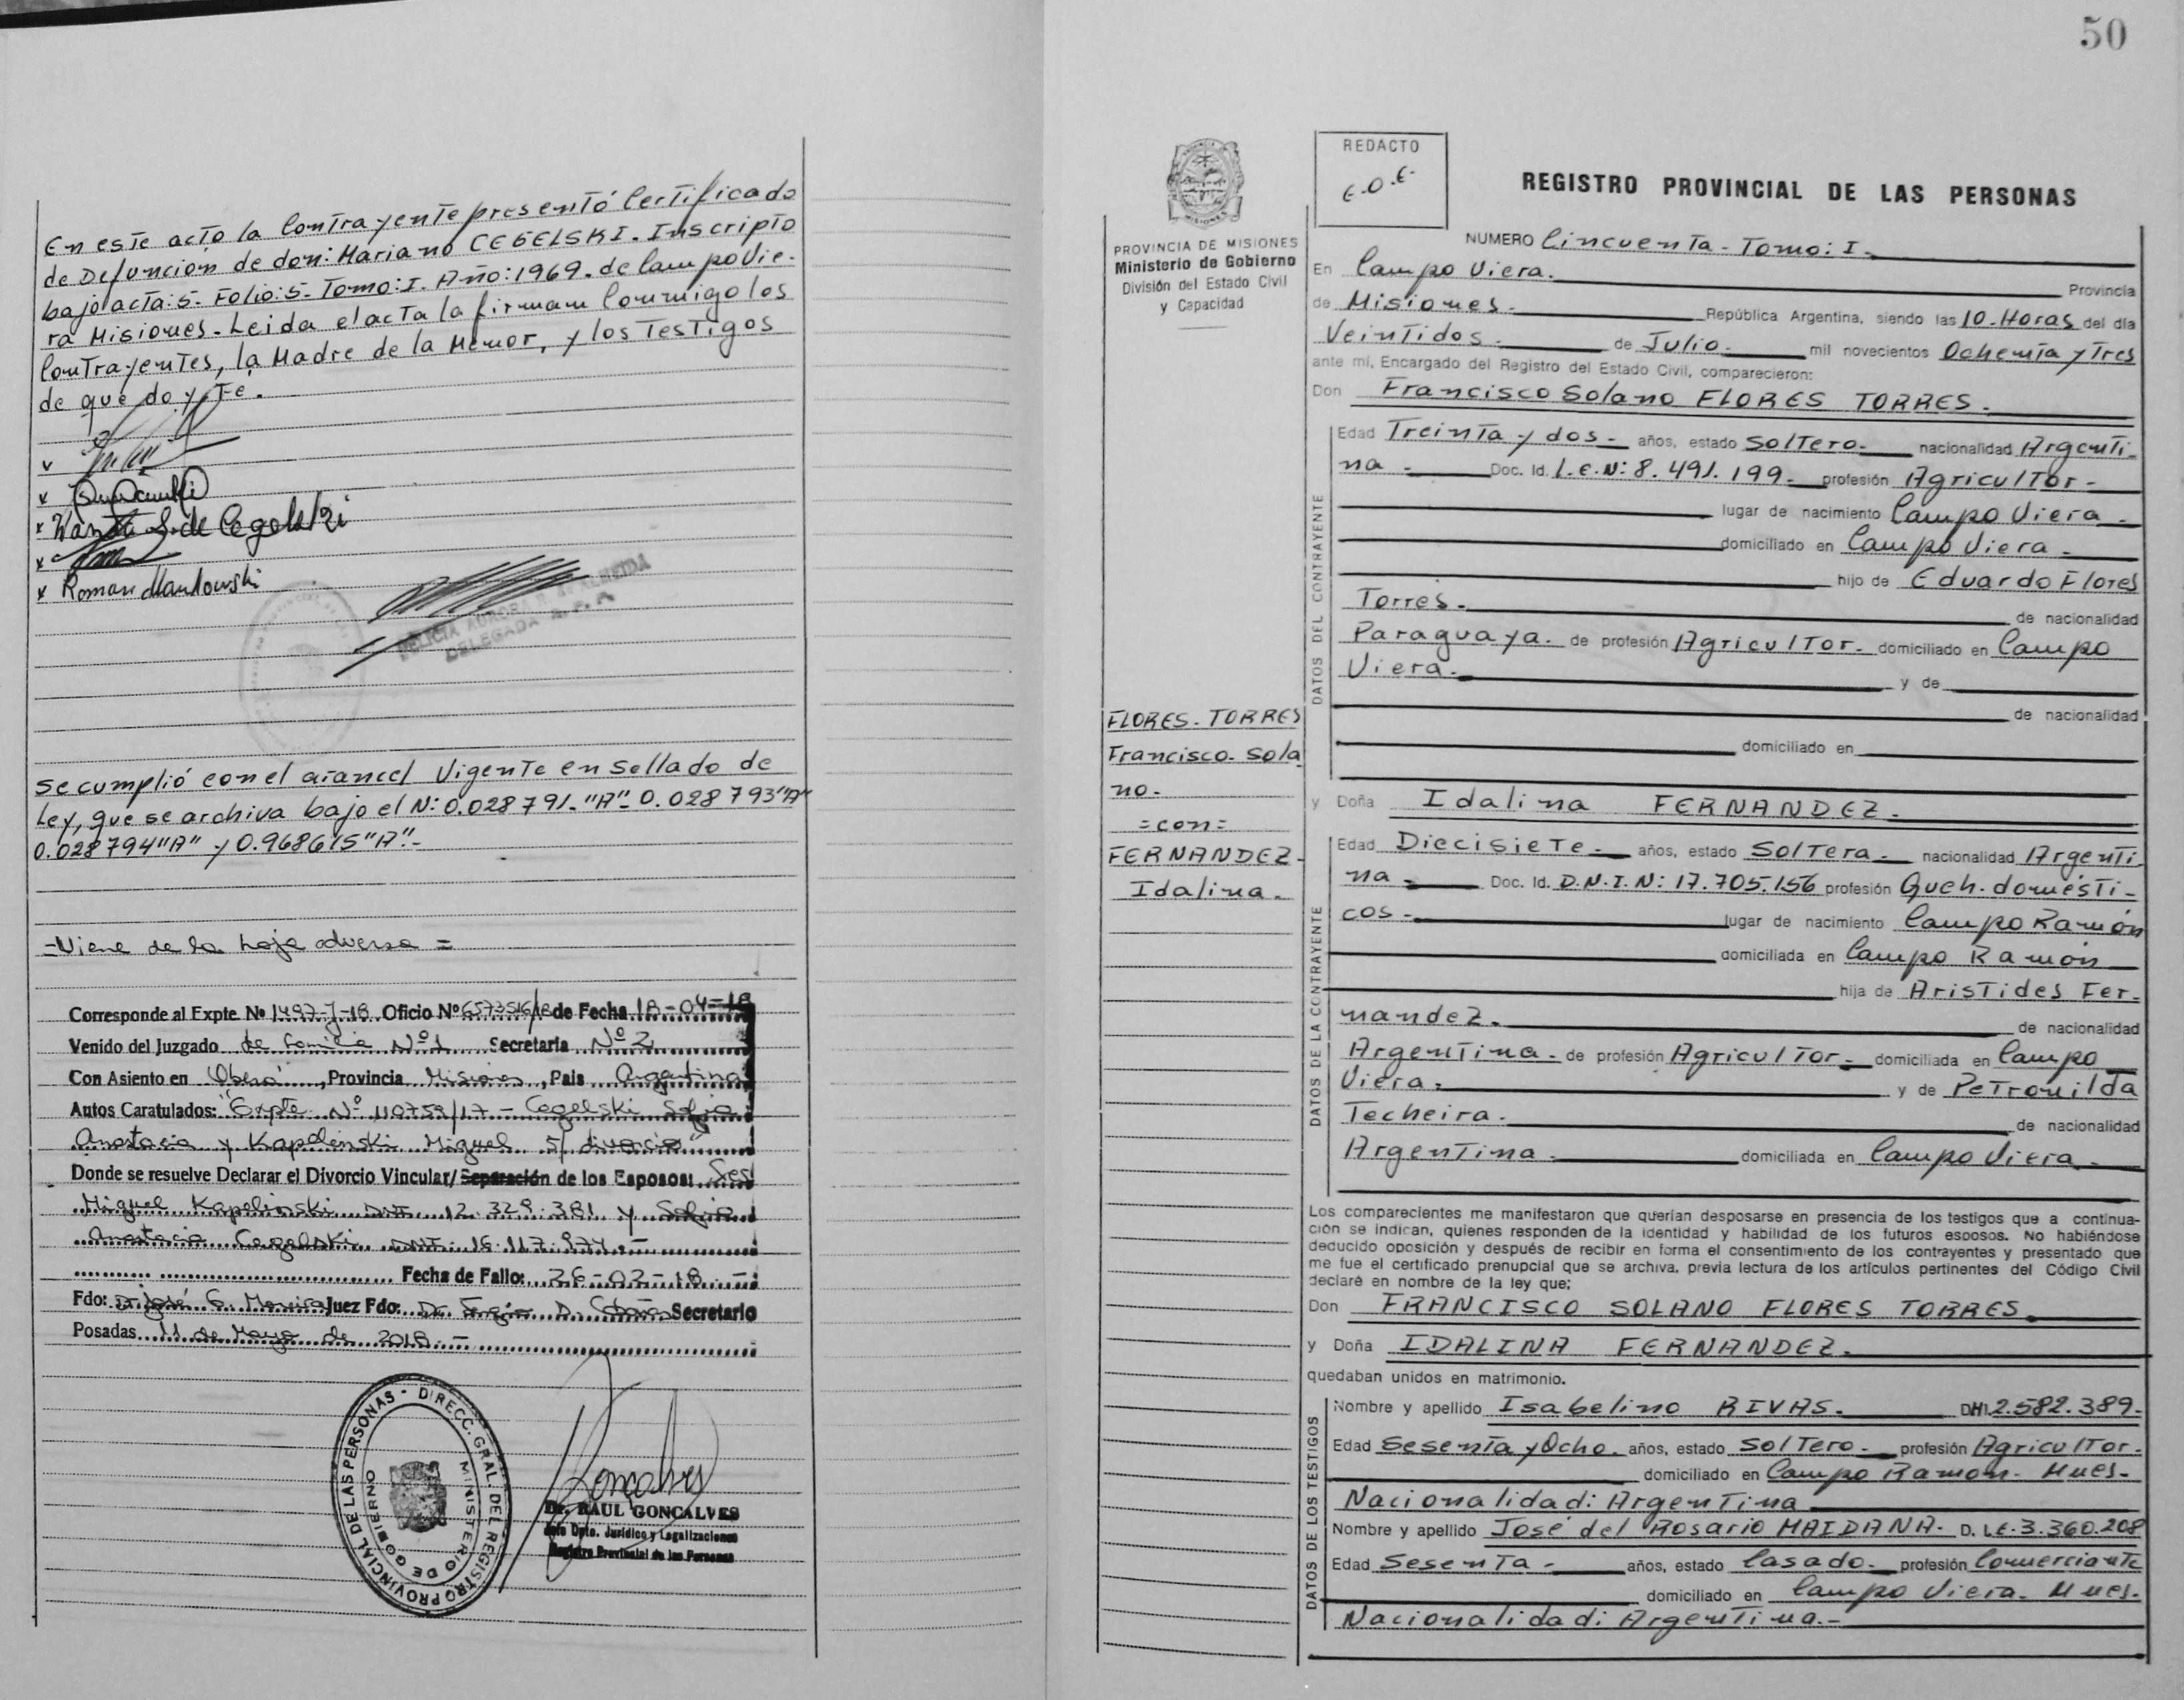 50
En este acto la Contrayente presentó Certificado
de Defuncion de don: Mariano CEGELSKI. Inscripto
bajo acta: 5- Folio: 5- Tomo: I. Año: 1969. de Campo Vie-
ra Misiones. Leida el acta la firman Conmigo los
Contrayentes, la Madre de la Menor, y los Testigos
de que doy Fe.
v
x
x Wanda S. de Cegelski
x
x Roman Mantowski
FELICIA AURORA R. de ALMEIDA
DELEGADA R. P. P.
Se cumplió con el arancel Vigente en Sellado de
Ley, que se archiva bajo el N: 0.028791-"A"- 0.028793"A"
0.028794"A" y 0.968615"A".-
=Viene de la hoja adversa =
Corresponde al Expte. Nº 1497-J-18 Oficio Nº 6573516/18 de Fecha 18-04-18
Venido del Juzgado de Familia Nº 1 Secretaria Nº 2
Con Asiento en Oberá, Provincia Misiones, Pais Argentina
Autos Caratulados: "Expte. Nº 110759/17 - Cegelski Sofia
Anastacia y Kapelinski Miguel s/ divorcio"
Donde se resuelve Declarar el Divorcio Vincular/Separación de los Esposos: Sres
Miguel Kapelinski DNI. 12.329.381 y Sofia
Anastacia Cegelski DNI. 16.117.974.-
Fecha de Fallo: 26-02-18.-
Fdo: Dr. José G. Moreira Juez Fdo: Dr. Sergio D. Secretario
Posadas 11 de Mayo de 2018.-
DIRECC. GRAL. DEL REGISTRO PROVINCIAL DE LAS PERSONAS -
MINISTERIO DE GOBIERNO
Goncalves
Dr. RAUL GONCALVES
Jefe Dpto. Jurídico y Legalizaciones
Registro Provincial de las Personas
MISIONES
PROVINCIA DE MISIONES
Ministerio de Gobierno
División del Estado Civil
y Capacidad
FLORES-TORRES
Francisco-Sola
no-
=con=
FERNANDEZ-
Idalina-
REDACTO
E.O.E.
REGISTRO PROVINCIAL DE LAS PERSONAS
NUMERO Cincuenta- Tomo: I-
En Campo Viera. Provincia
de Misiones- República Argentina, siendo las 10-Horas del día
Veintidos- de Julio- mil novecientos Ochenta y Tres
ante mí, Encargado del Registro del Estado Civil, comparecieron:
Don Francisco Solano FLORES TORRES-
DATOS DEL CONTRAYENTE
Edad Treinta y dos- años, estado Soltero- nacionalidad Argenti-
na- Doc. Id. L.E.N: 8.491.199- profesión Agricultor-
lugar de nacimiento Campo Viera-
domiciliado en Campo Viera-
hijo de Eduardo Flores
Torres- de nacionalidad
Paraguaya- de profesión Agricultor- domiciliado en Campo
Viera- y de
de nacionalidad
domiciliado en
y Doña Idalina FERNANDEZ-
DATOS DE LA CONTRAYENTE
Edad Diecisiete- años, estado Soltera- nacionalidad Argenti-
na- Doc. Id. D.N.I.N: 17.705.156 profesión Queh. domésti-
cos- lugar de nacimiento Campo Ramón
domiciliada en Campo Ramón
hija de Aristides Fer-
nandez- de nacionalidad
Argentina- de profesión Agricultor- domiciliada en Campo
Viera- y de Petronilda
Techeira- de nacionalidad
Argentina- domiciliada en Campo Viera-
Los comparecientes me manifestaron que querían desposarse en presencia de los testigos que a continua-
ción se indican, quienes responden de la identidad y habilidad de los futuros esposos. No habiéndose
deducido oposición y después de recibir en forma el consentimiento de los contrayentes y presentado que
me fue el certificado prenupcial que se archiva, previa lectura de los artículos pertinentes del Código Civil
declaré en nombre de la ley que;
Don FRANCISCO SOLANO FLORES TORRES-
y Doña IDALINA FERNANDEZ-
quedaban unidos en matrimonio.
DATOS DE LOS TESTIGOS
Nombre y apellido Isabelino RIVAS- DNI. 2.582.389-
Edad Sesenta y Ocho- años, estado Soltero- profesión Agricultor-
domiciliado en Campo Ramon- Mnes-
Nacionalidad: Argentina
Nombre y apellido José del Rosario MAIDANA- D. LE. 3.360.208
Edad Sesenta- años, estado Casado- profesión Comerciante
domiciliado en Campo Viera- Mnes-
Nacionalidad: Argentina.-